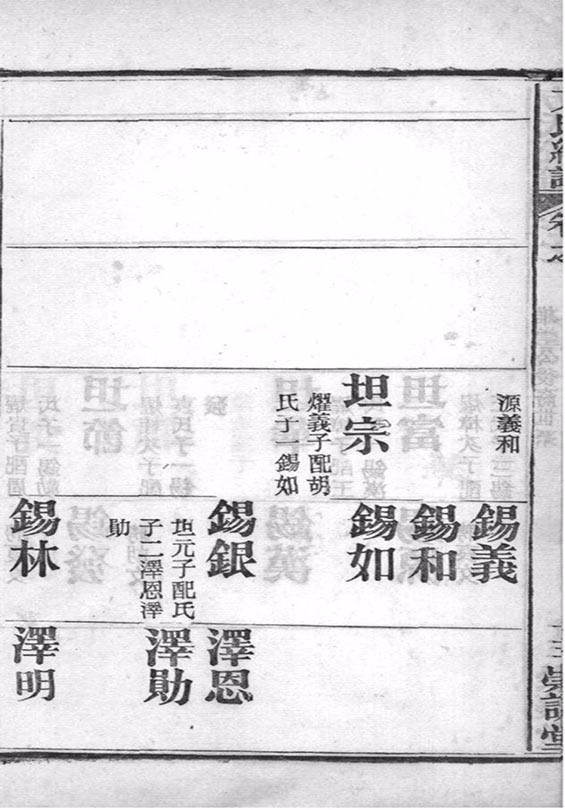 源義和
坦宗
燿義子配胡
氏子一錫如
錫義
錫和
錫如
錫銀
坦元子配氏
子二澤恩澤
勛
錫林
澤恩
澤勛
澤明